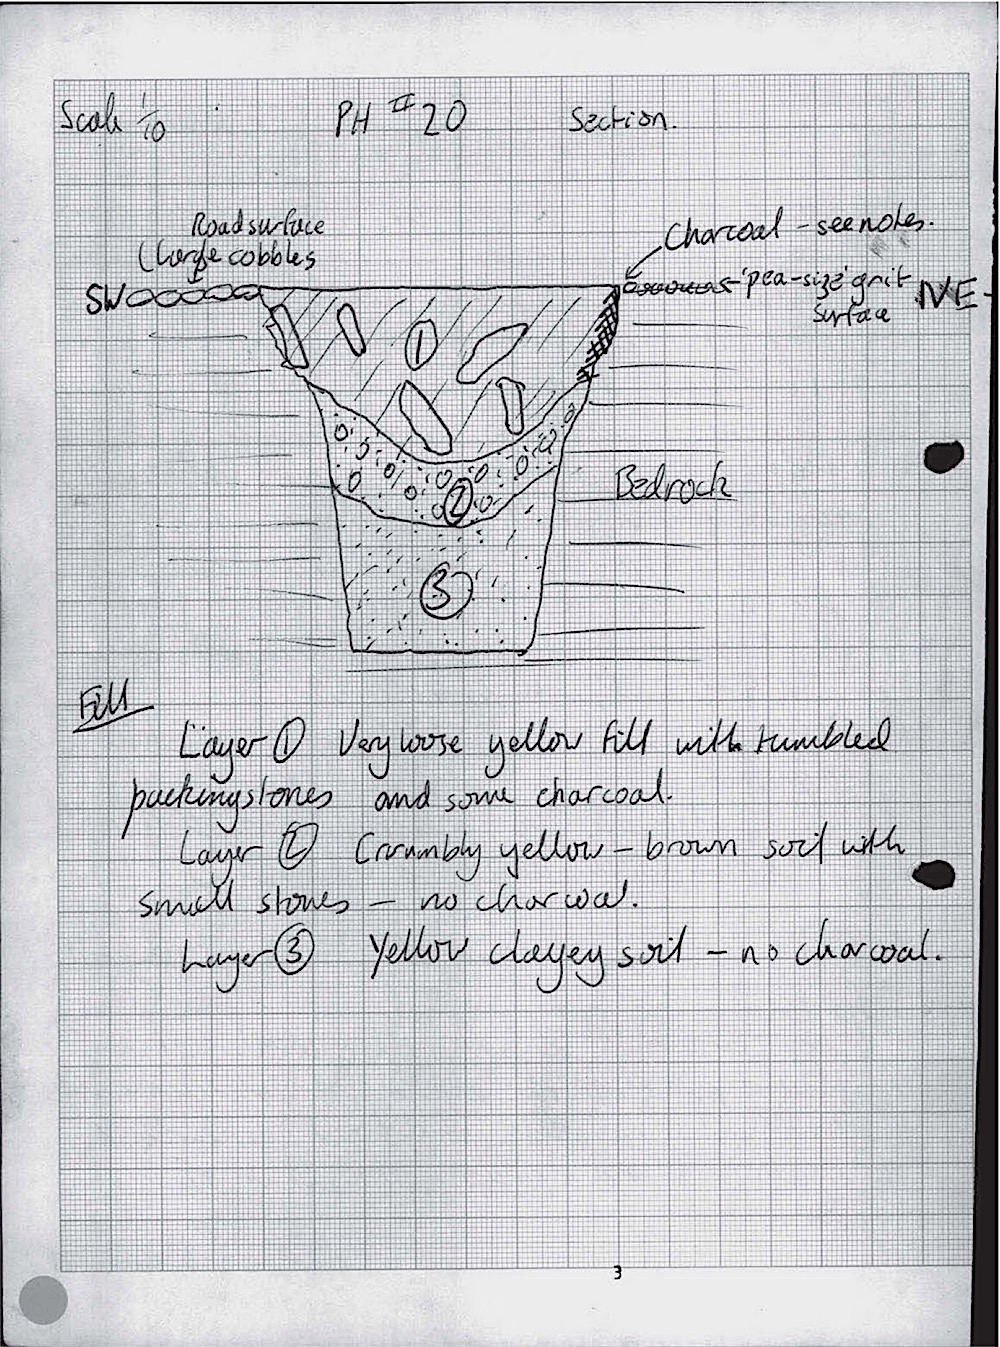 Scale 1/10 PH # 20 Section.
Road surface
(large cobbles
Charcoal - see notes.
SW
'pea-size' grit
surface
NE
1
2
Bedrock
3
Fill
Layer ① Very loose yellow fill with tumbled
packingstones and some charcoal.
Layer ② Crumbly yellow - brown soil with
small stones - no charcoal.
Layer ③ Yellow clayey soil - no charcoal.
3